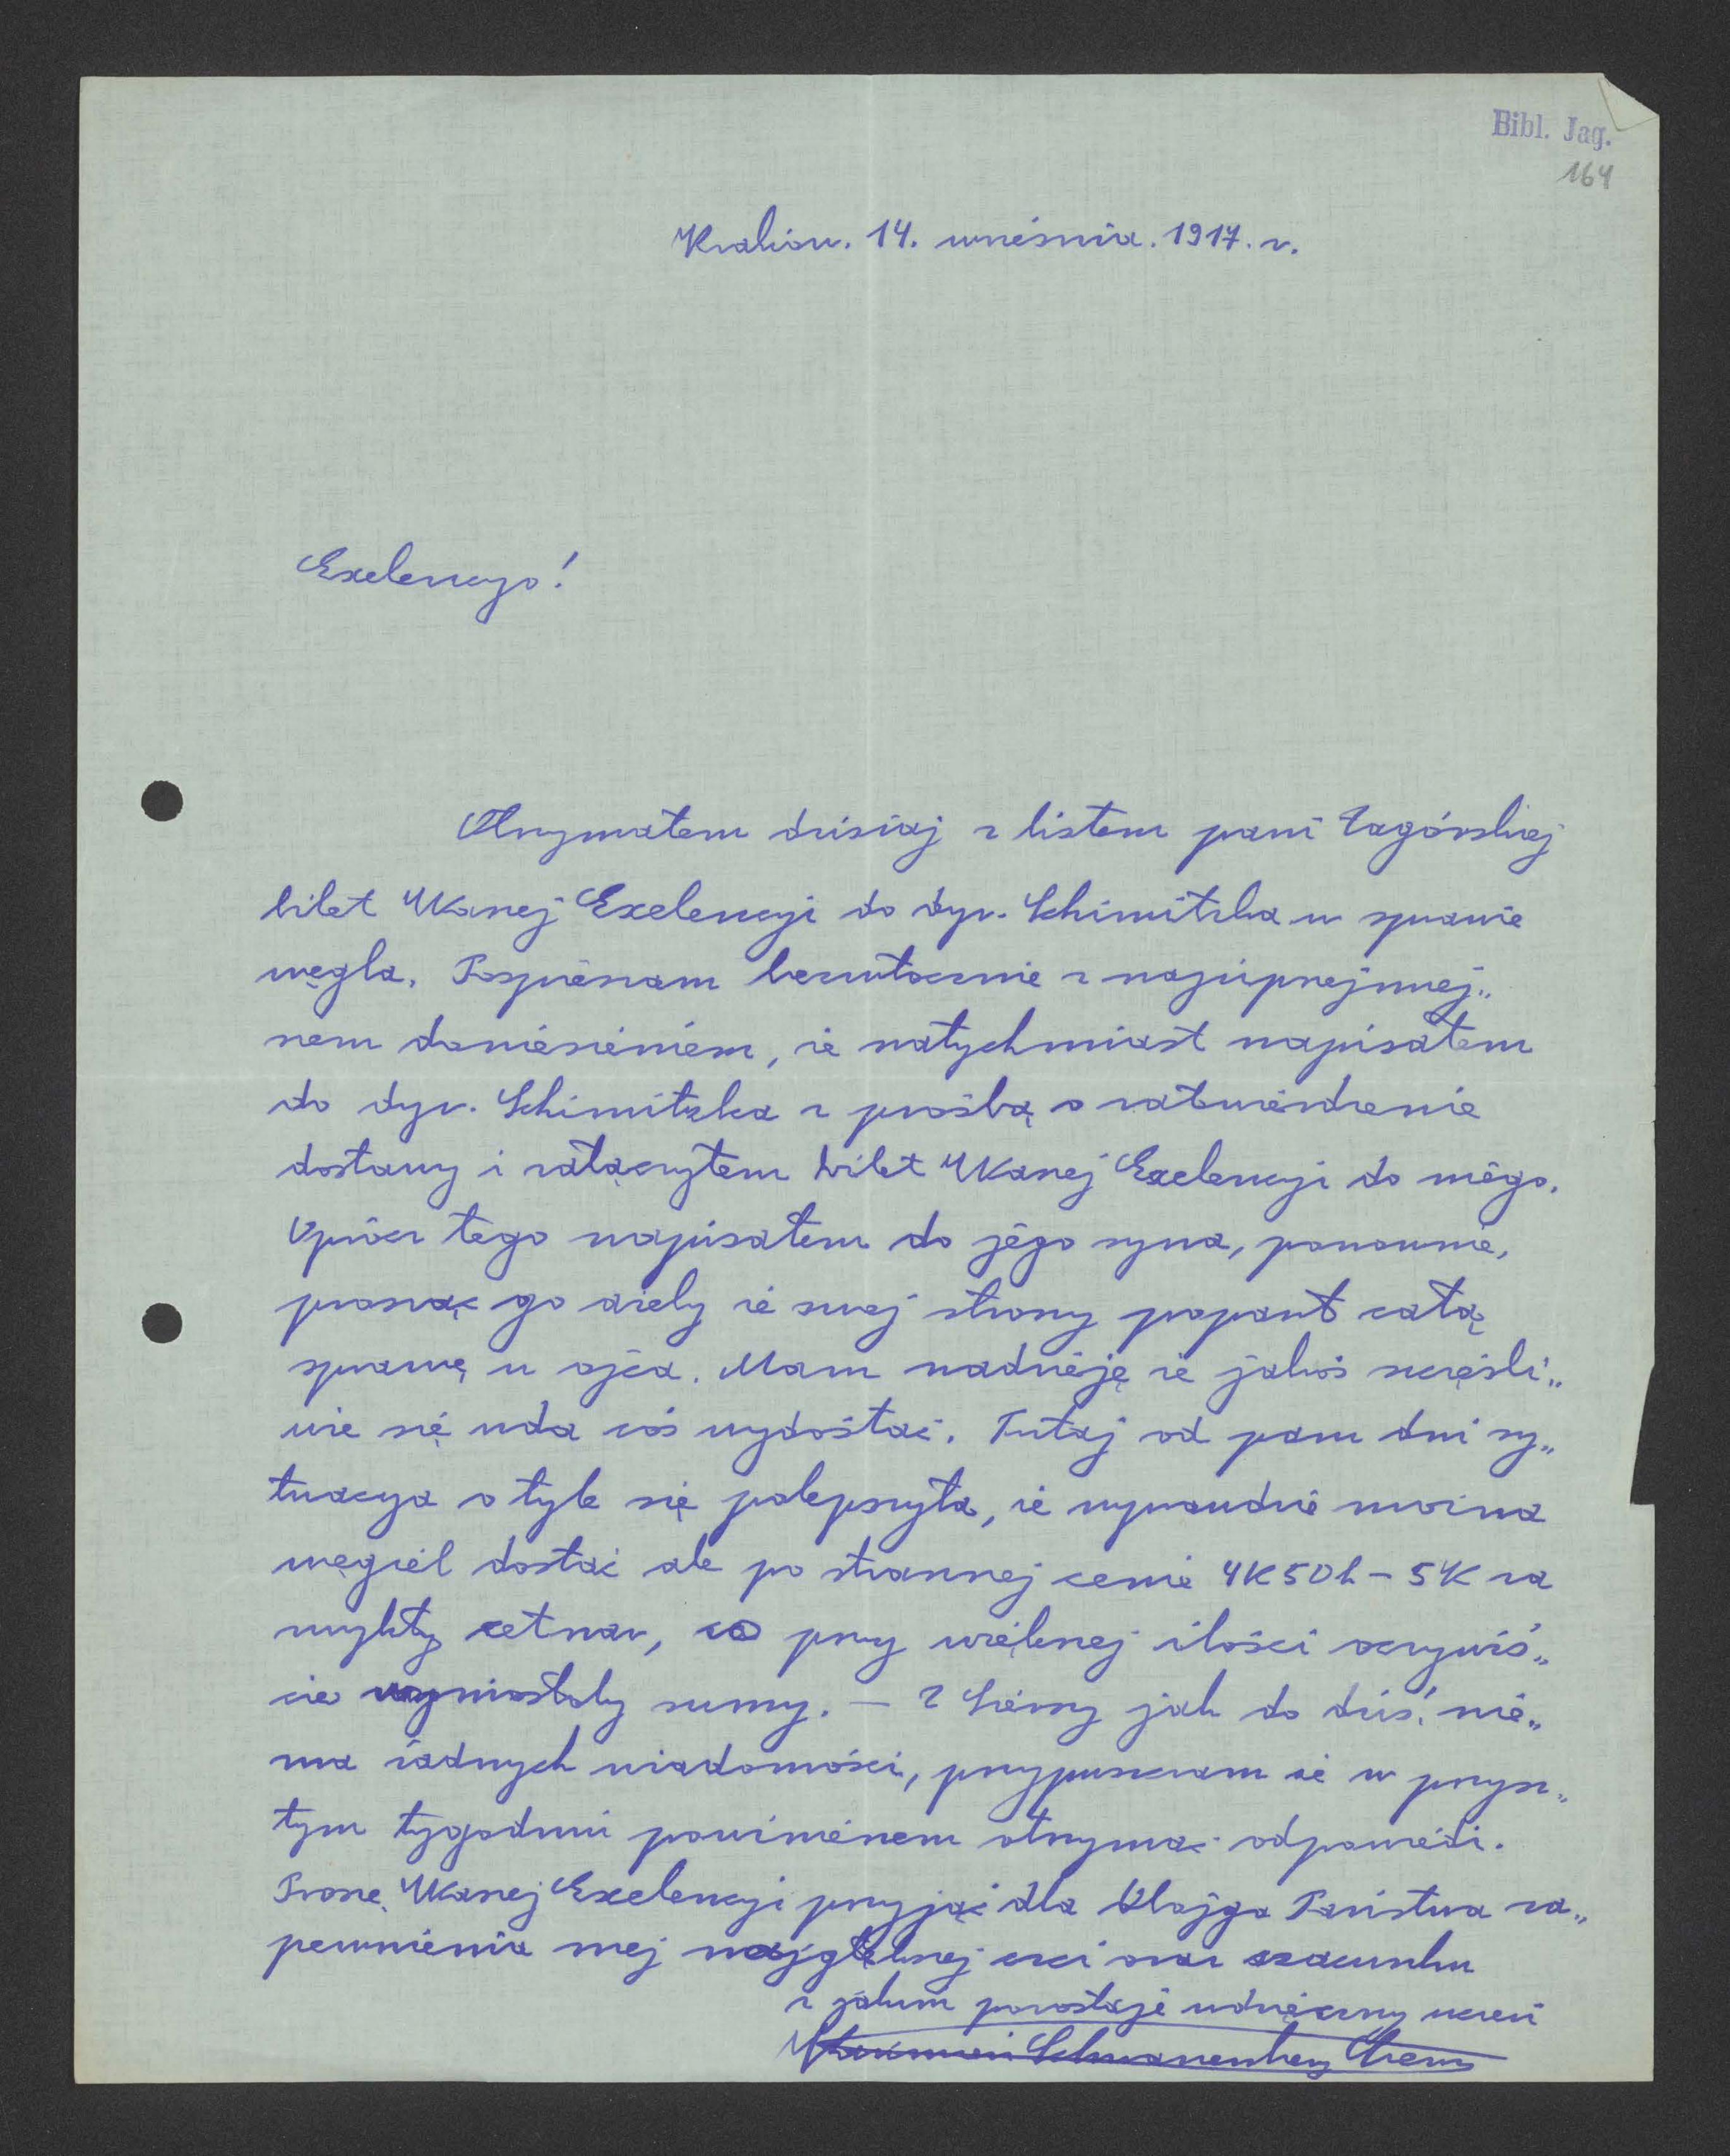 Bibl. Jag.
164
Kraków. 14. września. 1917. r.
Exelencyo!
Otrzymałem dzisiaj z listem pani Zagórskiej
bilet Wkanej Exelencyi do dyr. Schimitzka w sprawie
węgla. Pospieszam bezzwłocznie z najuprzejmiej„
szem doniesieniem, że natychmiast napisałem
do dyr. Schimitzka z prośbą o zatwierdzenie
dostawy i załączyłem bilet Wkanej Exelencyi do niego.
Oprócz tego napisałem do jego syna, ponownie,
prosząc go ażeby ze swej strony poparł całą
sprawę u ojca. Mam nadzieję że jakoś szczęśli„
wie się uda coś wydostać. Tutaj od paru dni sy„
tuacya o tyle się polepszyła, że wprawdzie można
węgiel dostać ale po strasznej cenie 4K50h – 5K za
zwykły cetnar, co przy większej ilości oczywiś„
cie wyniosłoby sumy. — Z Sierszy jak do dziś, nie„
ma żadnych wiadomości, przypuszczam że w przysz„
tym tygodniu powinienem otrzymać odpowiedź.
Proszę Wkanej Exelencyi przyjąć dla Obojga Państwa za„
pewnienia mej najgłębszej czci oraz szacunku
z jakim pozostaję wdzięczny uczeń
Schwarzenberg Czerny